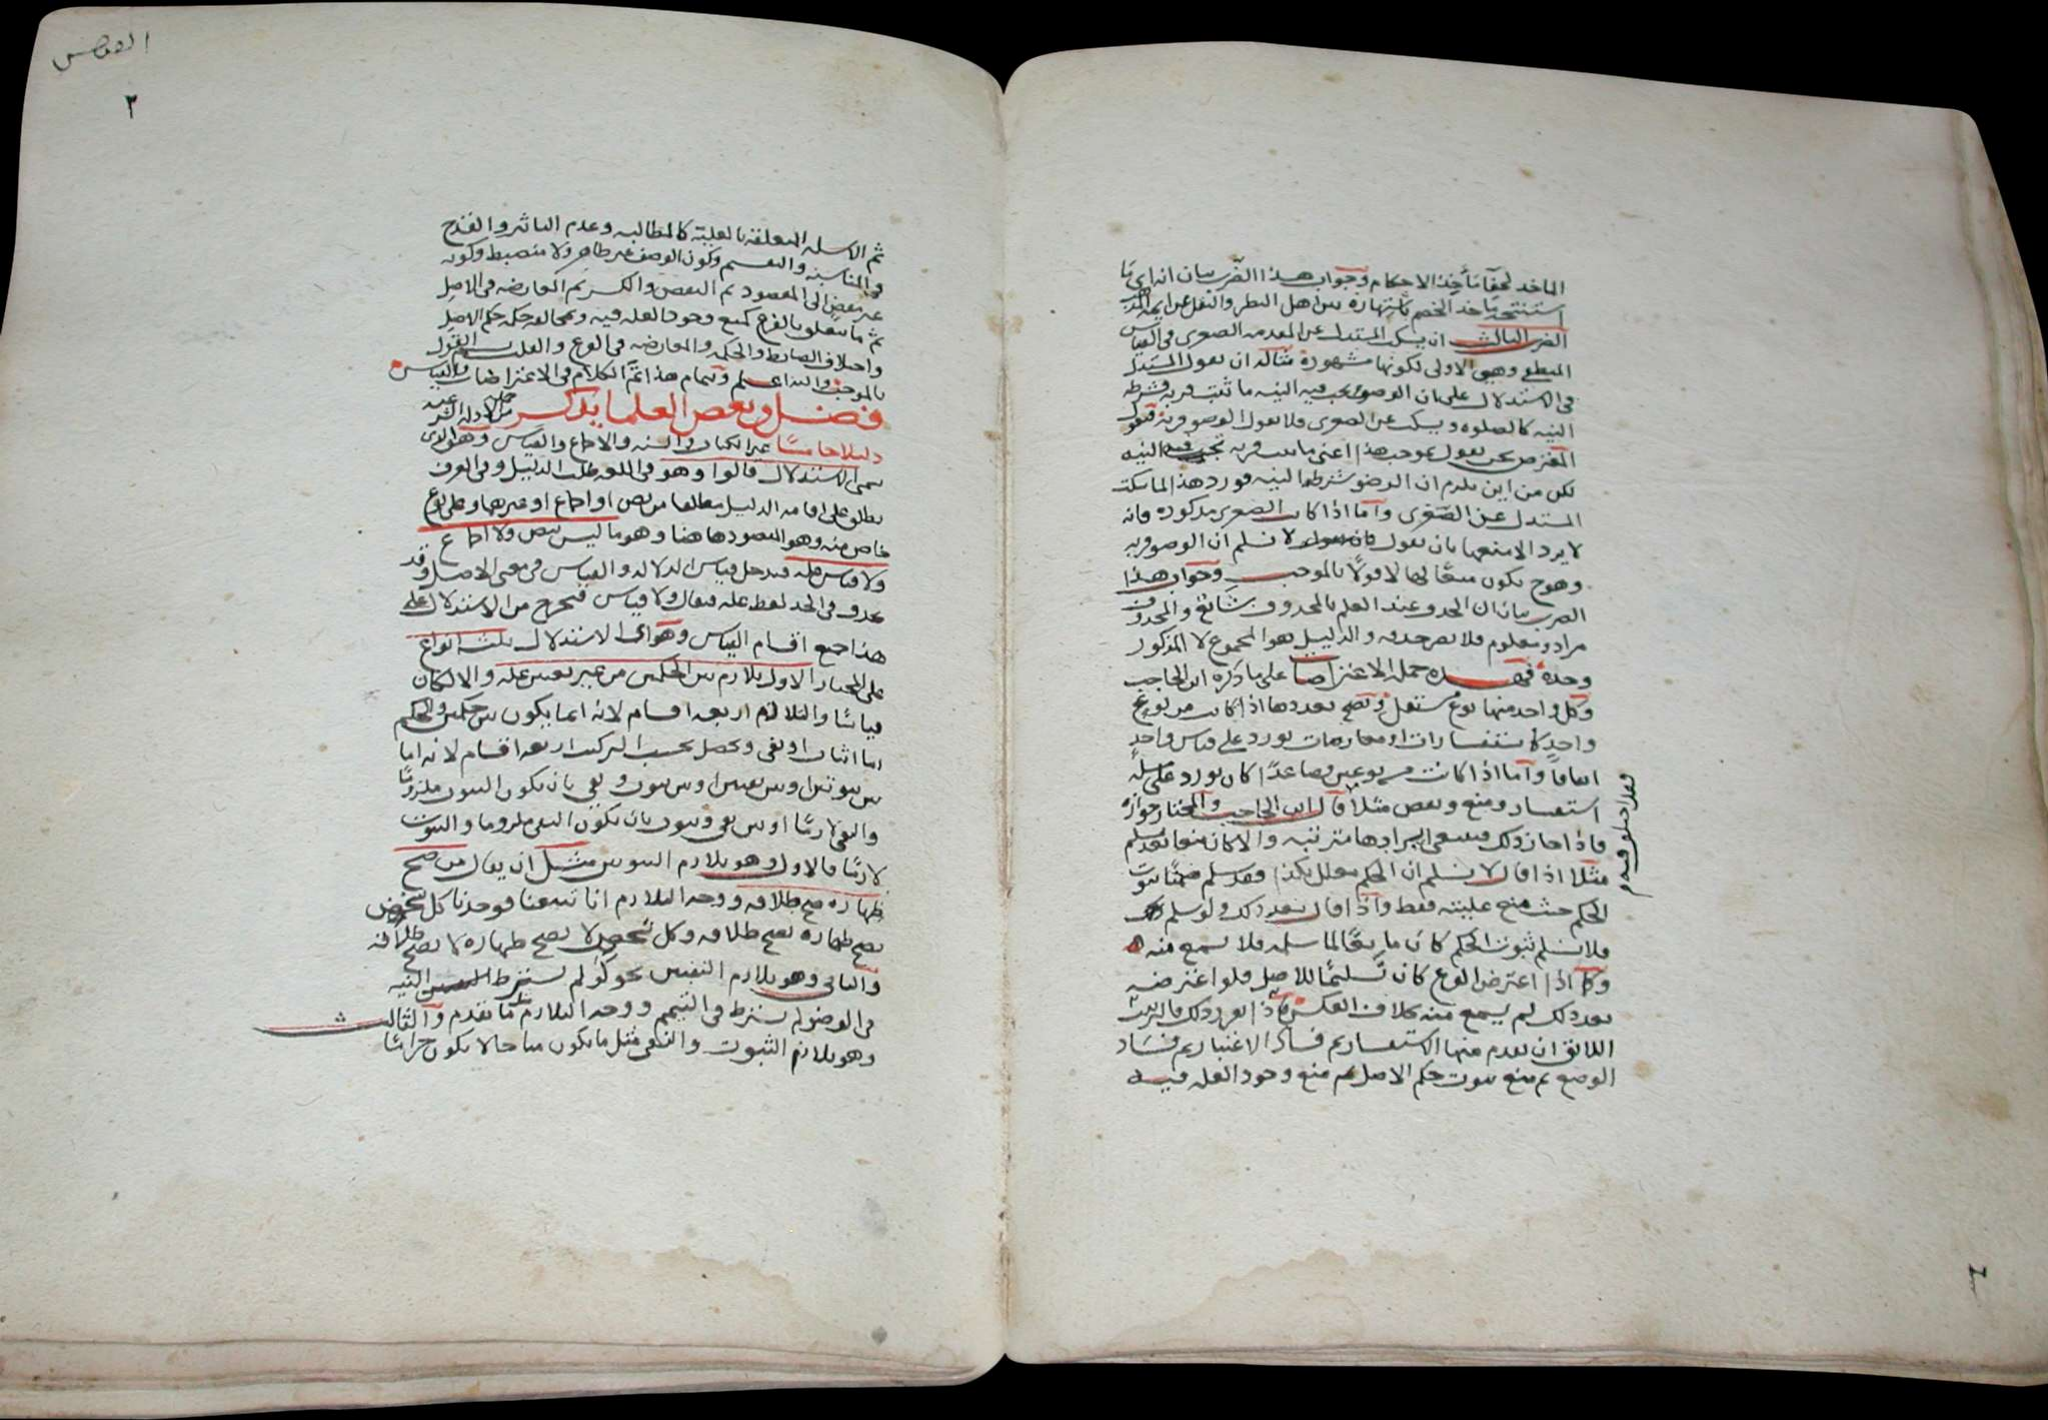 الماخذ لحقا مأخذ الاحكام وجواب هذا الضرب بيان انه اي ما
استنتجه ماخذ الخصم باشتهاره بين اهل النظر والنقل عن ايمة المذهب
الضرب الثالث ان يسكت المستدل عن المقدمة الصغرى في القياس
المنطقي وهي الاولى لكونها مشهورة مثاله ان يقول المستدل
في الاستدلال على ان الوضوء يجب فيه النية ما ثبت قربة فشرطه
النية كالصلوة ويسكت عن الصغرى فلا يقول الوضوء قربة فيقول
المعترض نحن نقول بموجب هذا اعني ما ثبت قربة تجب فيه النية
لكن من اين يلزم ان الوضو شرطه النية فورد هذا لما سكت
المستدل عن الصغرى واما اذا كانت الصغرى مذكورة فانه
لا يرد الا منعها بان يقول لا نسلم ان الوضو قربة
وهو ح يكون منعا لها لا قولا بالموجب وجواب هذا
الضرب بيان ان الحذف عند العلم بالمحذوف شائع والمحذوف
مراد ومعلوم فلا يضر حذفه والدليل هو المجموع لا المذكور
وحده فهذه جملة الاعتراضات على ما ذكره ابن الحاجب
وكل واحد منها نوع مستقل ويصح تعددها اذا كانت من نوع
واحد كاستفسارات او معارضات تورد على قياس واحد
اتفاقا واما اذا كانت من نوعين فصاعدا كان يورد على مسئلة
استفسار ومنع ونقض مثلا قال ابن الحاجب والمختار جوازه
فاذا جاز ذلك فينبغي ايرادها مترتبة والا كان منعا بعد تسليم
مثلا اذا قال لا نسلم ان الحكم معلل بكذا فقد سلم ضمنا ثبوت
الحكم حيث منع عليته فقط واذا قال بعد ذلك ولو سلم
فلا نسلم ثبوت الحكم كان مانعا لما سلمه فلا يسمع منه
وكذا اذا اعترض الفرع كان تسليما للاصل فلو اعترضه
بعد ذلك لم يسمع منه بخلاف العكس فاذا تقرر ذلك فالترتيب
اللائق ان يقدم منها الاستفسار ثم فساد الاعتبار ثم فساد
الوضع ثم منع ثبوت حكم الاصل ثم منع وجود العلة فيه
ثم الاسئلة المتعلقة بالعلية كالمطالبة وعدم التاثير والقدح
في المناسبة والتقسيم وكون الوصف غير ظاهر ولا منضبط وكونه
غير مفض الى المقصود ثم النقض والكسر ثم المعارضة في الاصل
ثم ما يتعلق بالفرع كمنع وجود العلة فيه ومخالفة حكمه حكم الاصل
واختلاف الضابط والحكمة والمعارضة في الفرع والقلب ثم القول
بالموجب والله اعلم وبتمام هذا تم الكلام في الاعتراضات والقياس
فصل وبعض العلما يذكر من الادلة الشرعية
دليلا خامسا غير الكتاب والسنة والاجماع والقياس وهو الذي
يسمى الاستدلال قالوا وهو في اللغة طلب الدليل وفي العرف
يطلق على اقامة الدليل مطلقا من نص او اجماع او غيرهما وعلى نوع
خاص منه وهو المقصود هاهنا وهو ما ليس بنص ولا اجماع
ولا قياس علة فيدخل قياس الدلالة والقياس في معنى الاصل وقد
يحذف في الحد لفظ علة فيقال ولا قياس فيخرج من الاستدلال على
هذا جميع اقسام القياس وهو اي الاستدلال ثلثة انواع
على المختار الاول تلازم بين الحكمين من غير تعيين علة والا لكان
قياسا والتلازم اربعة اقسام لانه انما يكون بين حكمين والحكم
اما اثبات او نفي ويحصل بحسب التركيب اربعة اقسام لانه اما
بين ثبوتين او بين نفيين او بين ثبوت ونفي بان يكون الثبوت ملزوما
والنفي لازما او بين نفي وثبوت بان يكون النفي ملزوما والثبوت
لازما فالاول وهو تلازم الثبوتين مثل ان يقال من صح
ظهاره صح طلاقه ووجه التلازم انا تتبعنا فوجدنا كل شخص
يصح ظهاره يصح طلاقه وكل شخص لا يصح ظهاره لا يصح طلاقه
والثاني وهو تلازم النفيين نحو لو لم يشترط النية
في الوضو لم يشترط في التيمم ووجه التلازم ما تقدم والثالث
وهو تلازم الثبوت والنفي مثل ما يكون مباحا لا يكون حراما